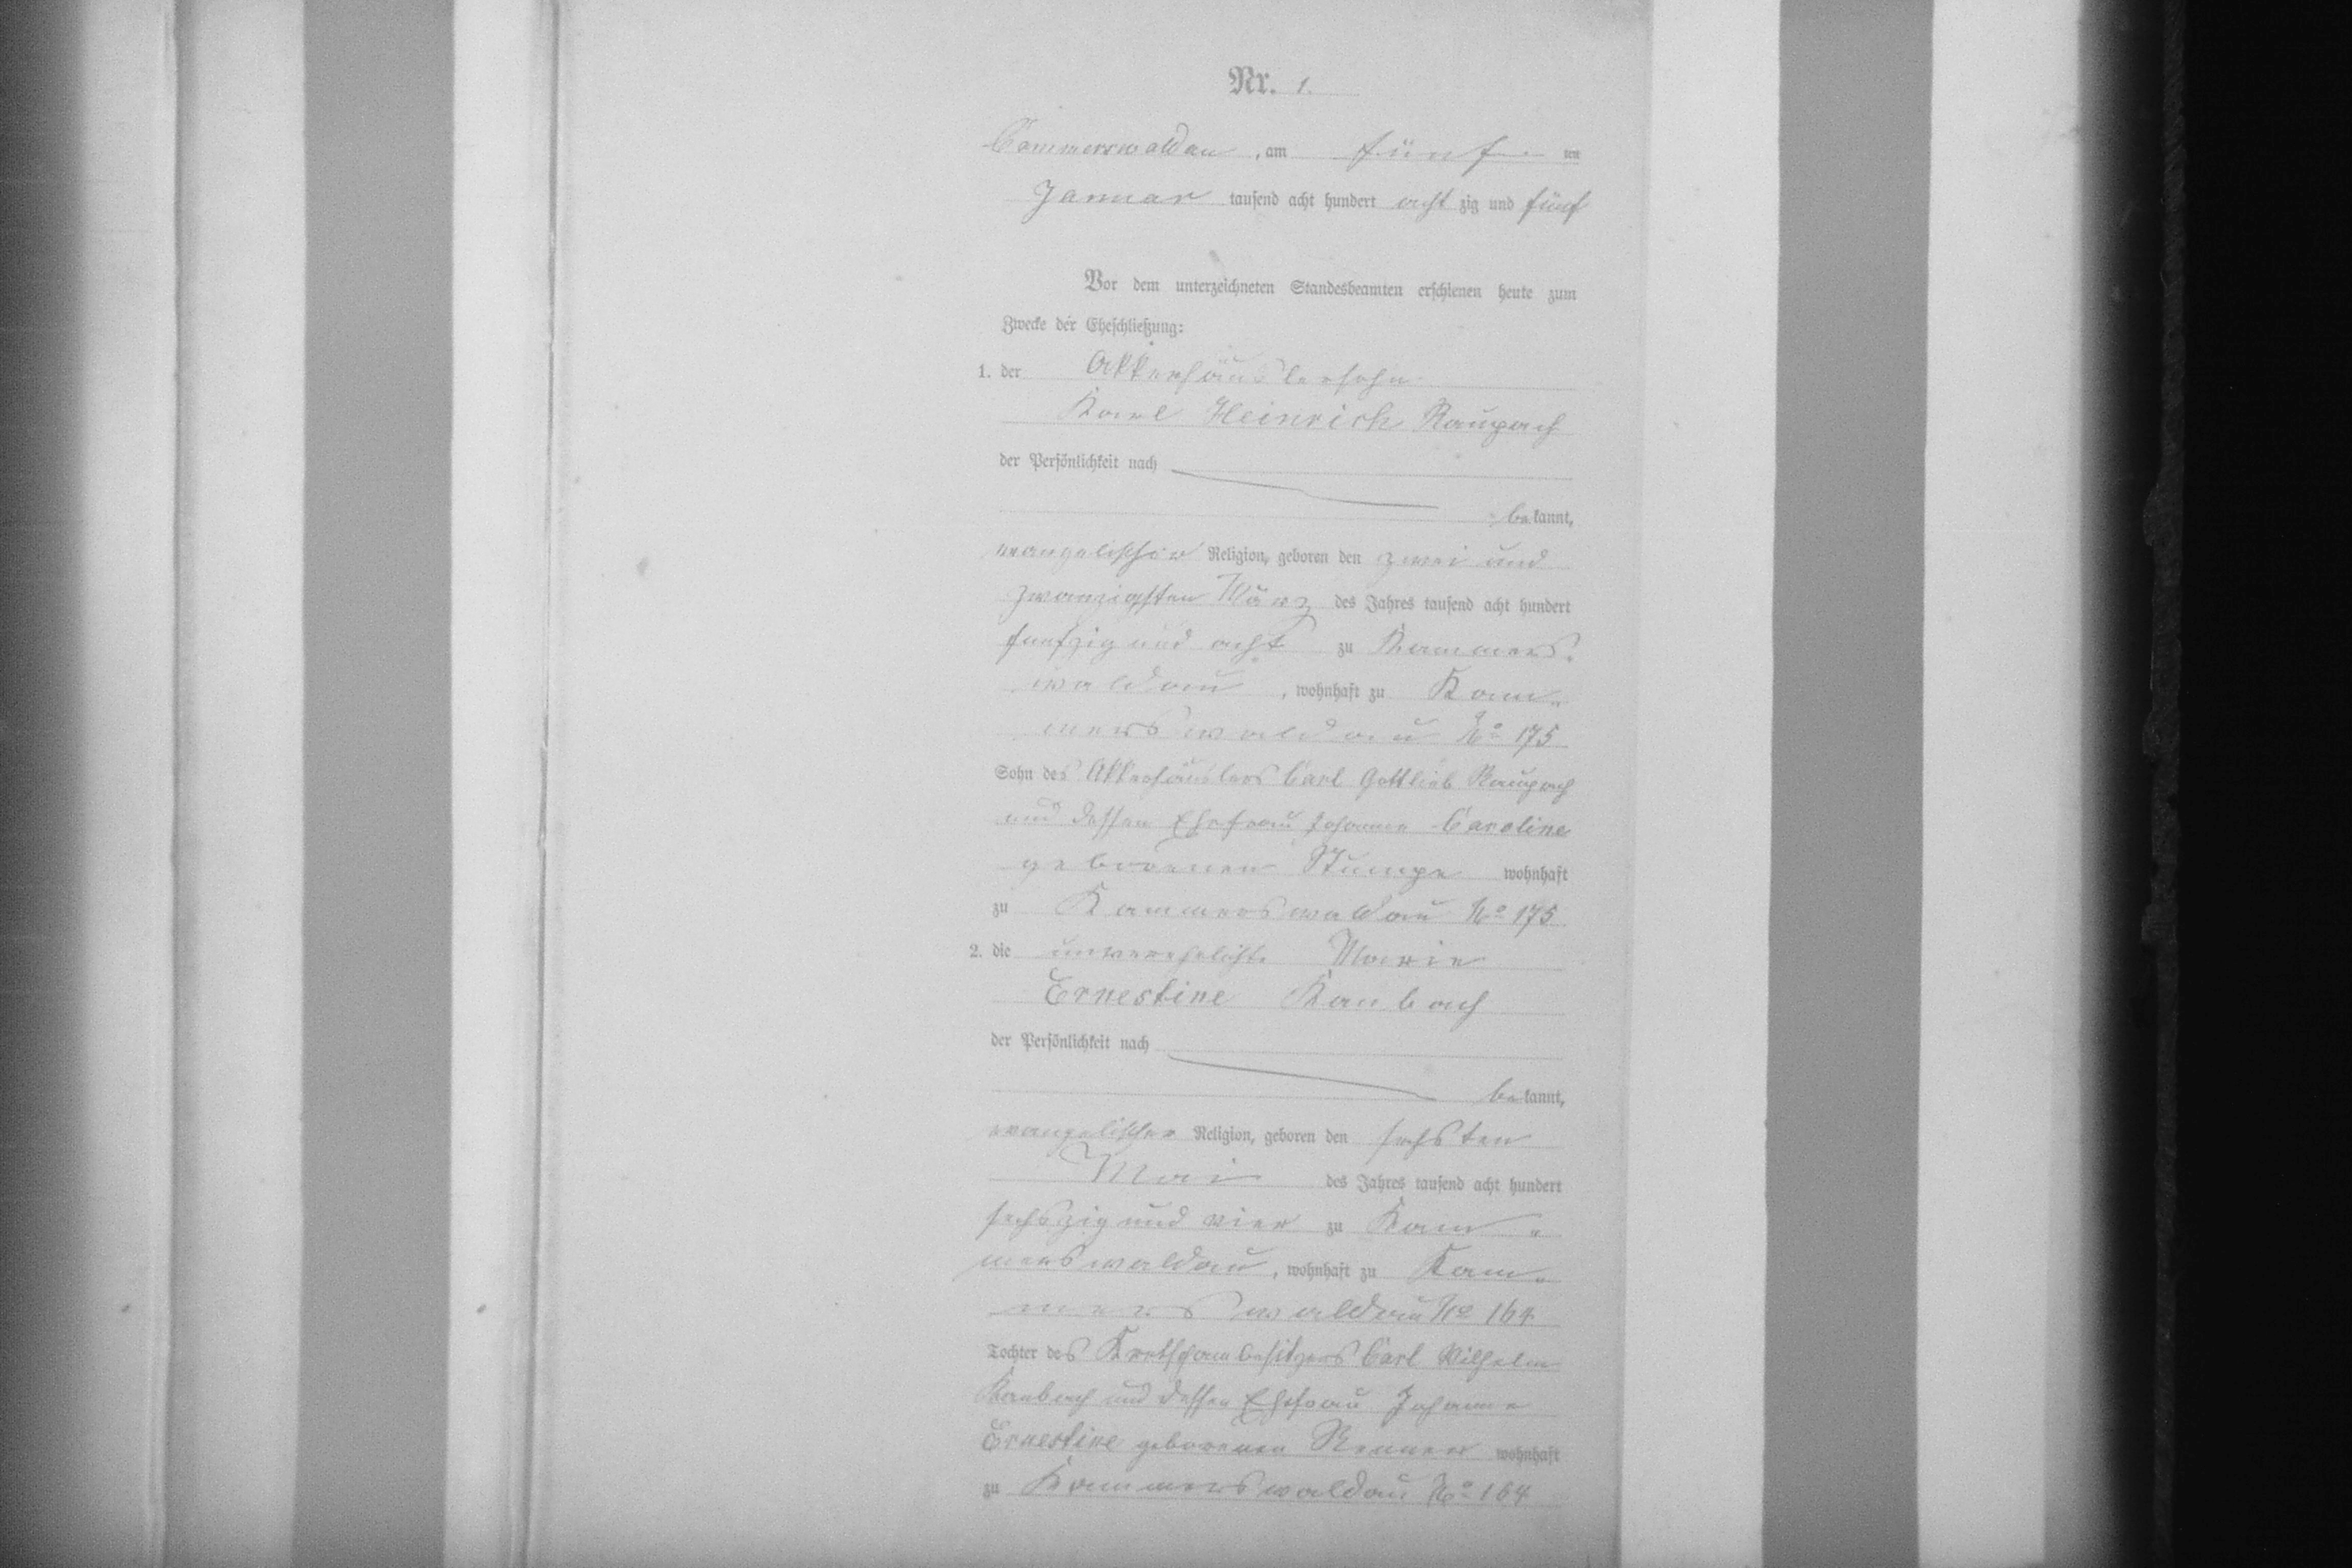 Nr. 1.
Cammerswaldau, am fünf ten
Januar tausend acht hundert acht zig und fünf
Vor dem unterzeichneten Standesbeamten erschienen heute zum
Zwecke der Eheschließung:
1. der Akkerhäuslersohn
Karl Heinrich Raupach
der Persönlichkeit nach
bekannt,
evangelischer Religion, geboren den zwei und
zwanzigsten März des Jahres tausend acht hundert
funfzig und acht zu Kammers-
waldau, wohnhaft zu Kam-
merswaldau No 175
Sohn des Akkerhäuslers Carl Gottlieb Raupach
und dessen Ehefrau Johanne Caroline
geborenen Stumpe wohnhaft
zu Kammerswaldau No 175
2. die unverehelichte Marie
Ernestine Kambach
der Persönlichkeit nach
bekannt,
evangelischer Religion, geboren den sechsten
Mai des Jahres tausend acht hundert
sechszig und vier zu Kam-
merswaldau, wohnhaft zu Kam-
merswaldau No 164
Tochter des Kretschambesitzers Carl Wilhelm
Kambach und dessen Ehefrau Johanne
Ernestine geborenen Renner wohnhaft
zu Kammerswaldau No 164